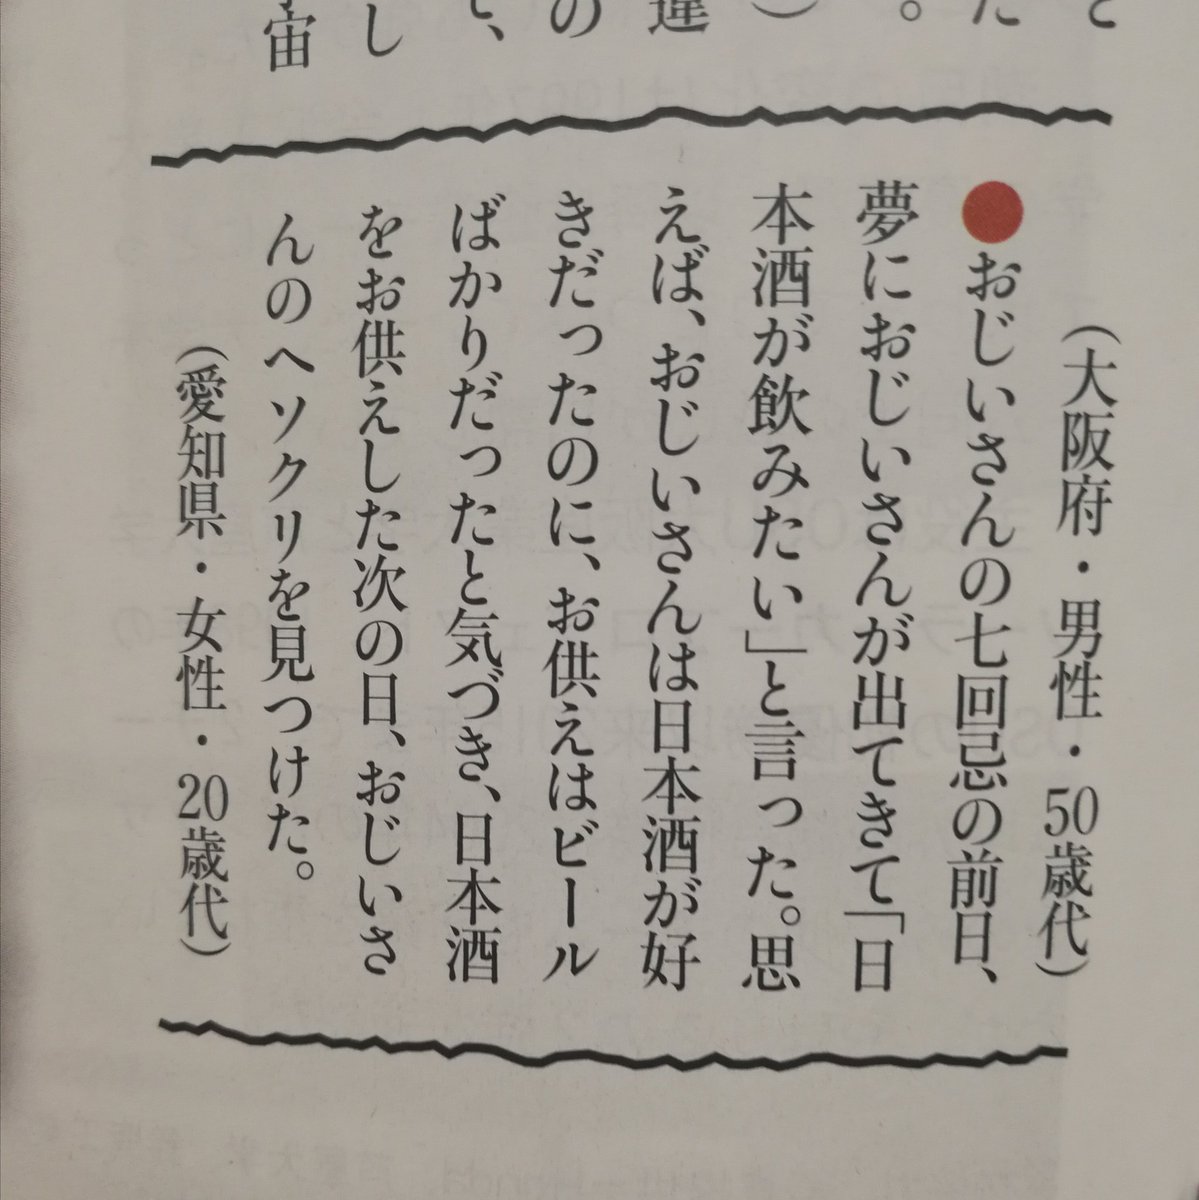 と
た
。
）
違
の
て、
し
宙
（大阪府・男性・50歳代）
●おじいさんの七回忌の前日、
夢におじいさんが出てきて「日
本酒が飲みたい」と言った。思
えば、おじいさんは日本酒が好
きだったのに、お供えはビール
ばかりだったと気づき、日本酒
をお供えした次の日、おじいさ
んのヘソクリを見つけた。
（愛知県・女性・20歳代）